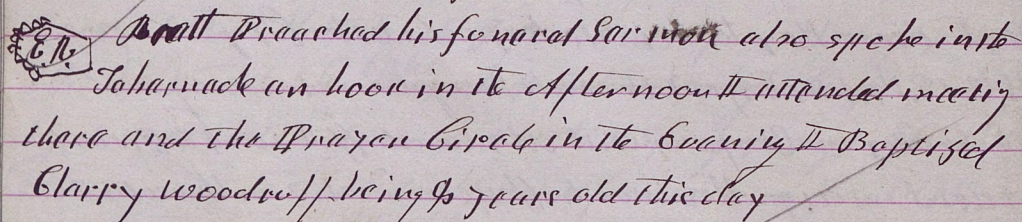 E. R. Pratt Preached his foneral Sarmon also spoke in the
Tabarnacle an hoor in the Afternoon I attended meetig
there and the Prayer Circle in the Evening I Baptized
Clarry Woodruff being 8 years old this day